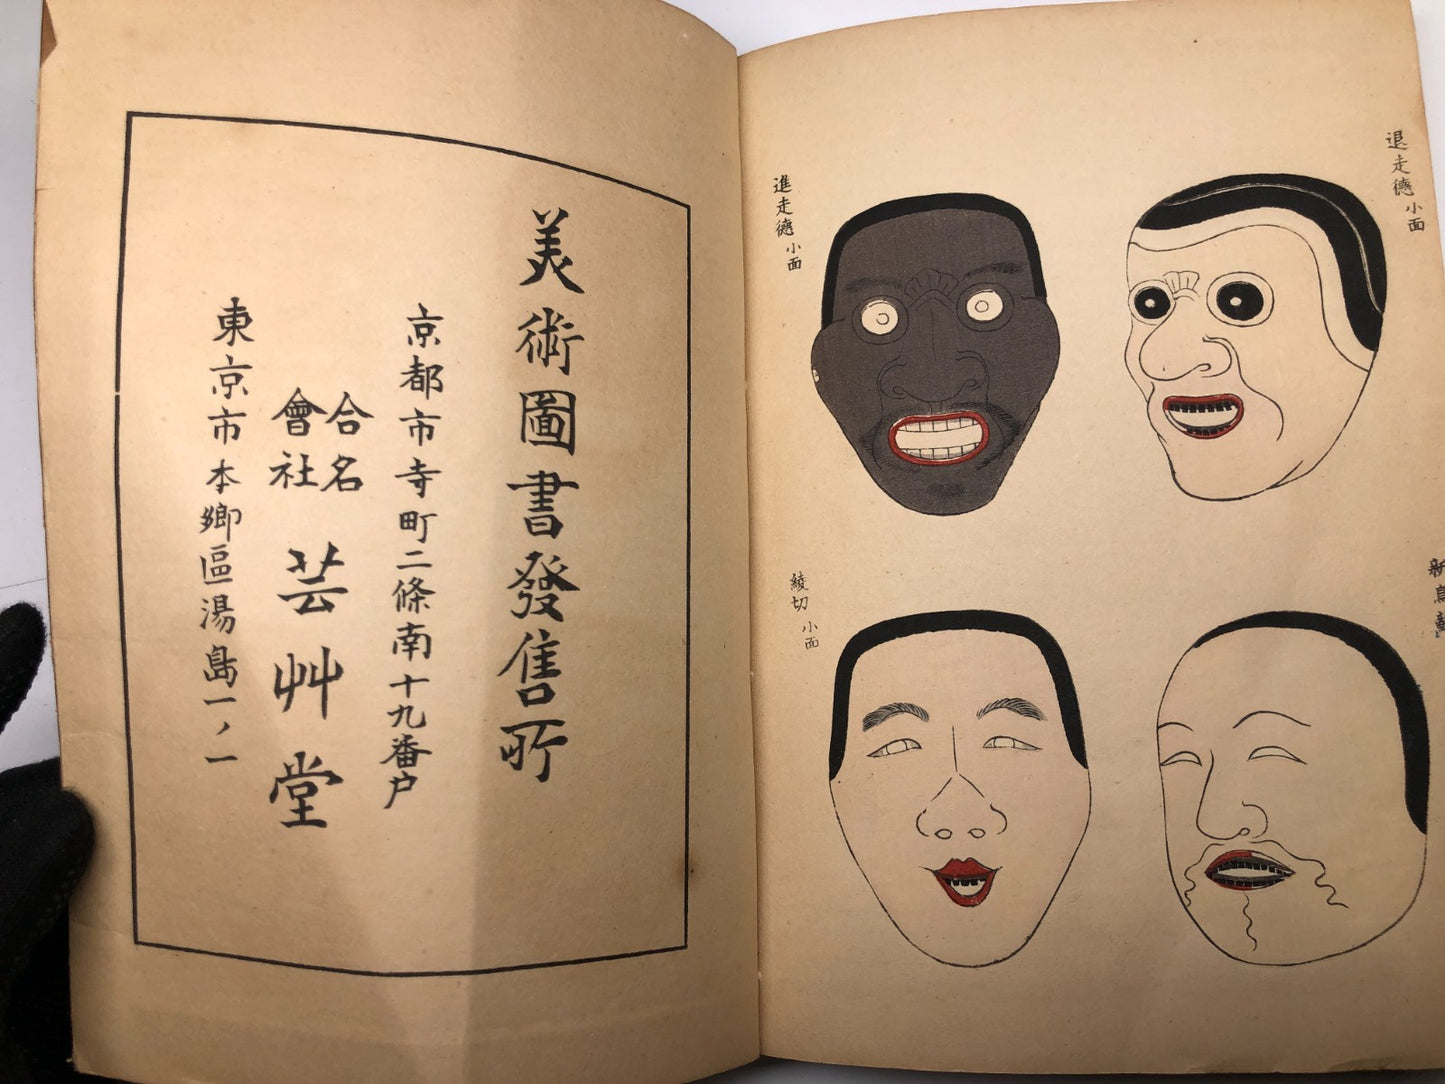 退走德 小面
進走德 小面
新鳥
綾切 小面
美術圖書發售所
京都市寺町二條南十九番戸
合名
會社
芸艸堂
東京市本鄉區湯島一ノ一